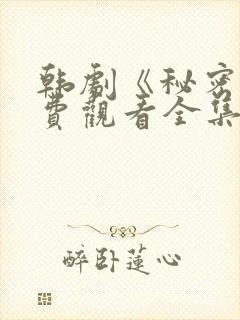 韩剧《秘密
費觀看全集
醉卧蓮心